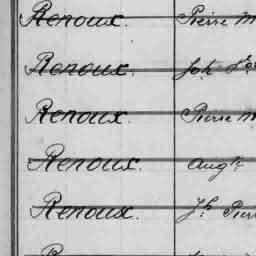 Renoux. Pierre M
Renoux. Joh
Renoux. Pierre M
Renoux. Augte
Renoux. Jh Pier